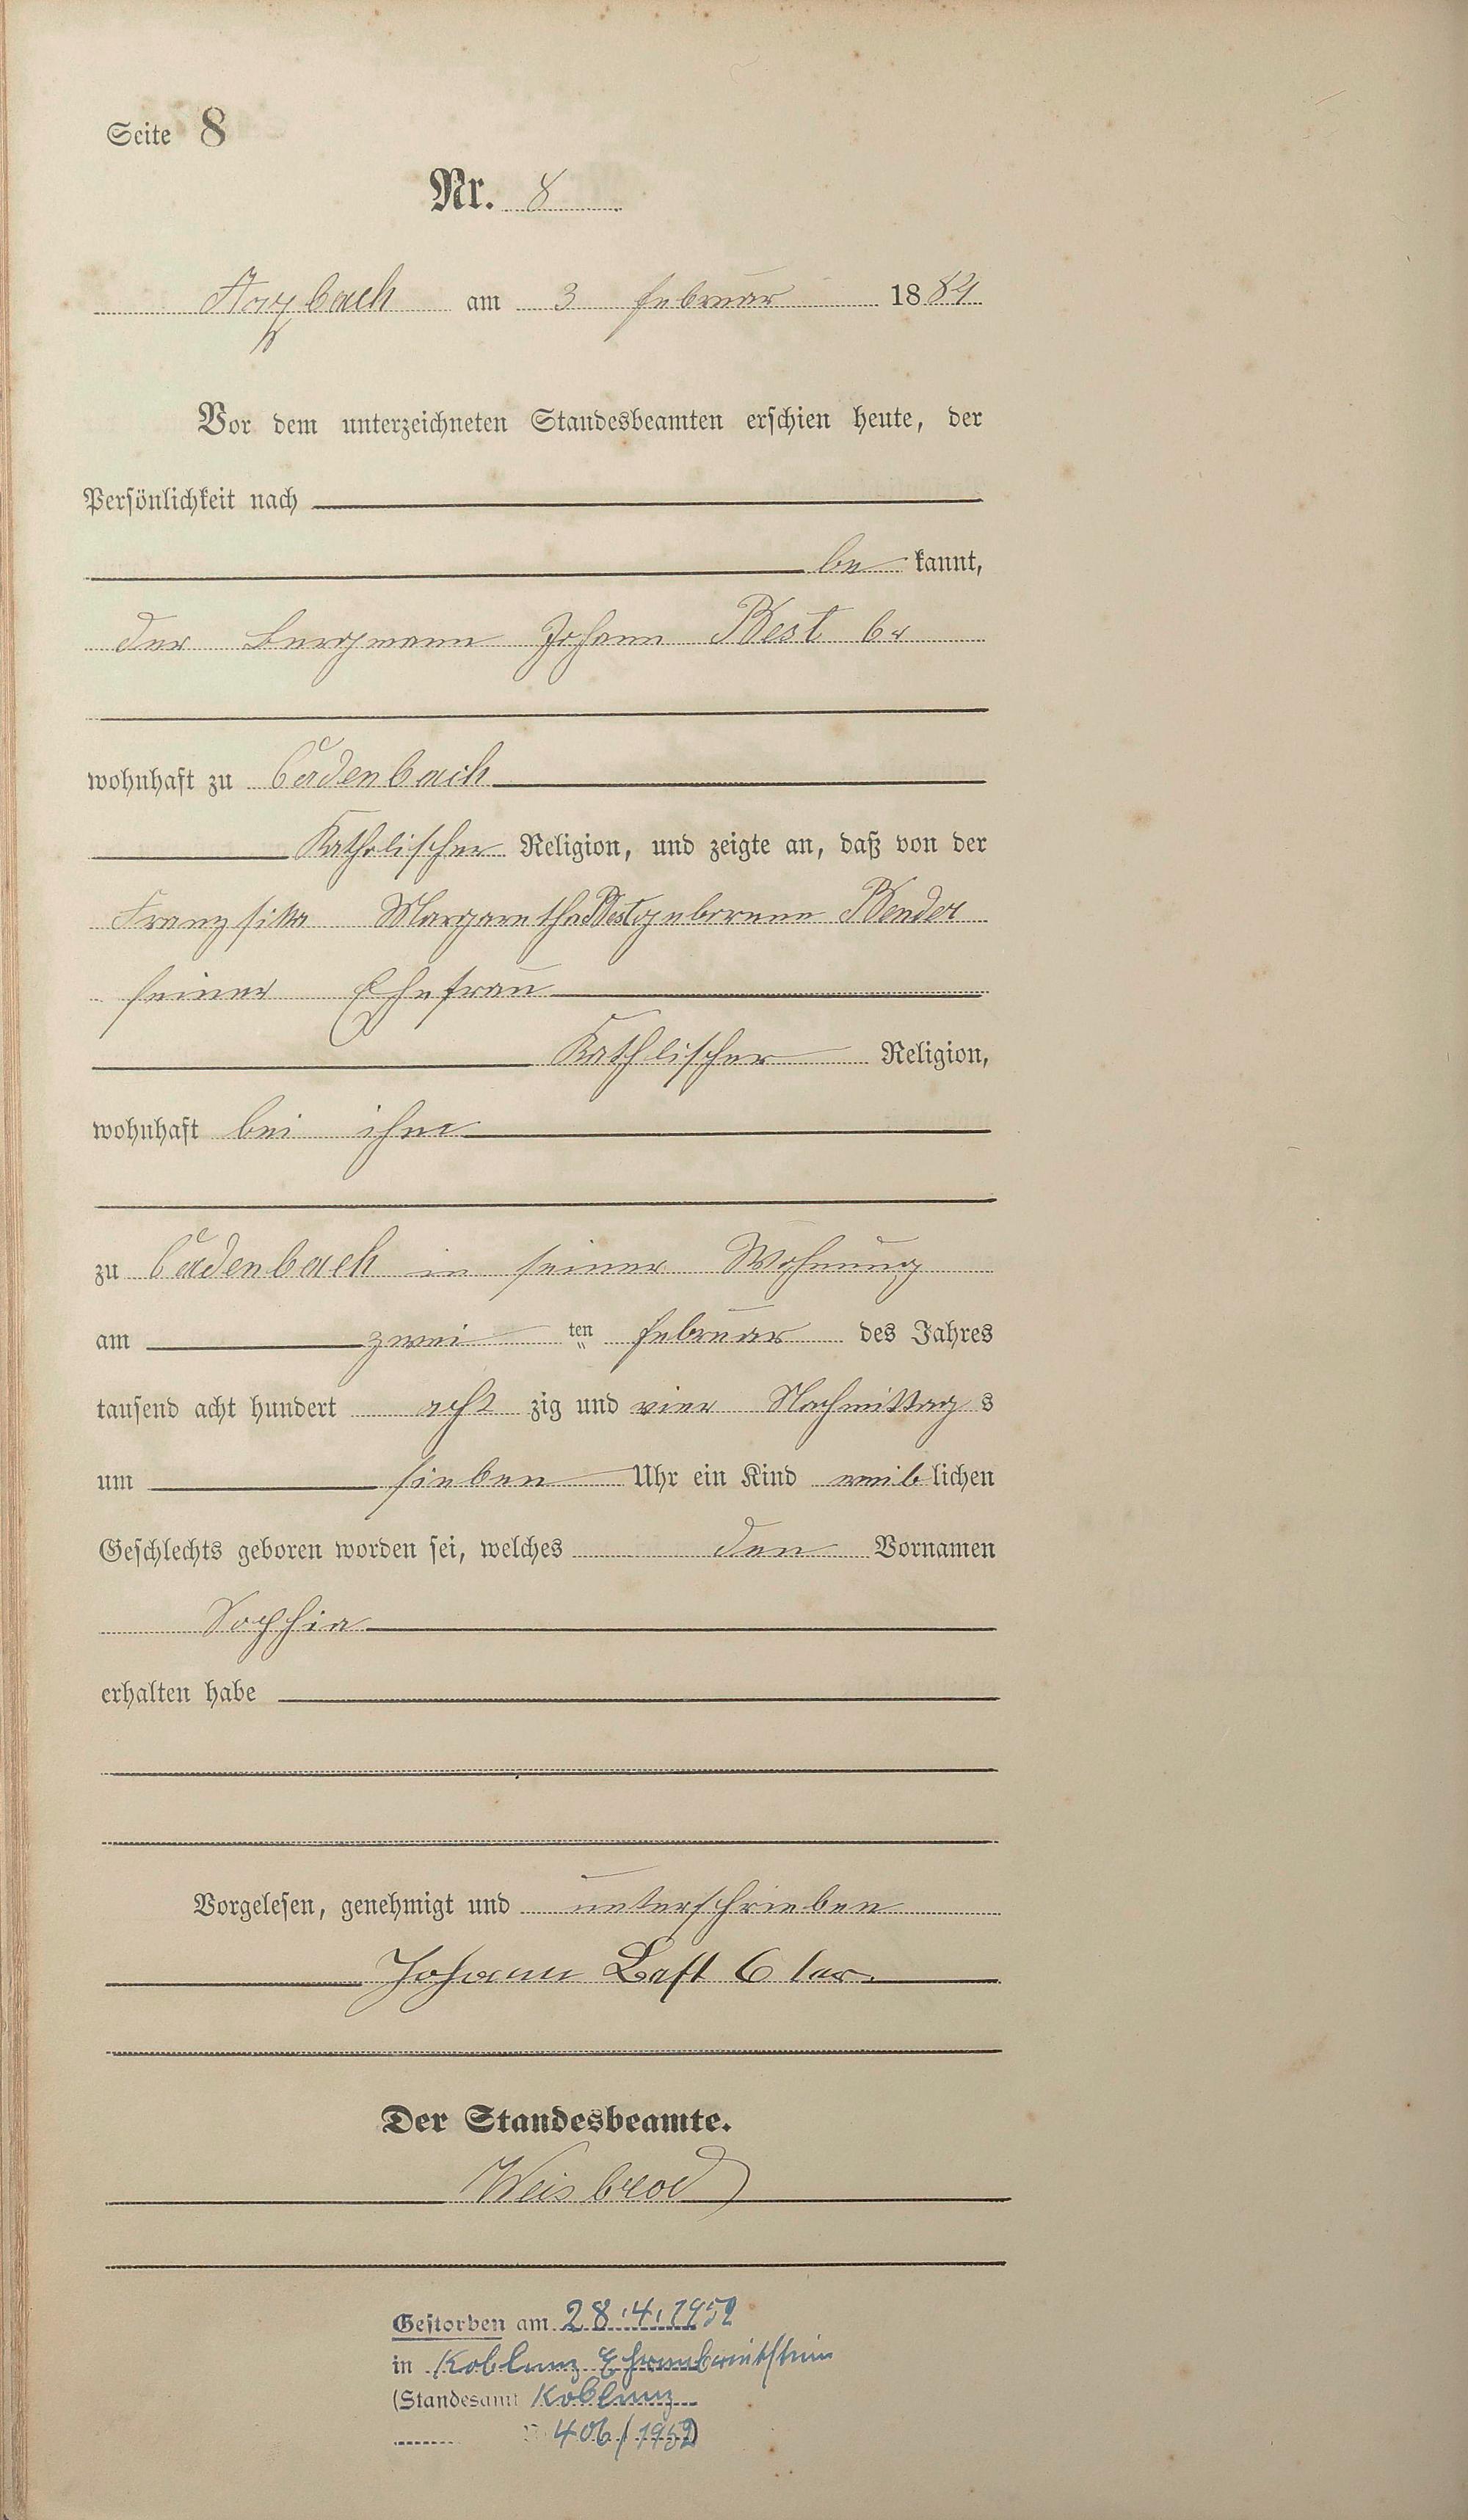 Seite 8
Nr. 8
Arzbach am 3 Februar 1884
Vor dem unterzeichneten Standesbeamten erschien heute, der
Persönlichkeit nach
bekannt,
der Bergmann Johann Best 6r
wohnhaft zu Cadenbach
Katholischer Religion, und zeigte an, daß von der
Franzsika Margaretha Best geborene Bender
seiner Ehefrau
Kathlischer Religion,
wohnhaft bei ihm
zu Cadenbach in seiner Wohnung
am zwei ten Februar des Jahres
tausend acht hundert acht zig und vier Nachmittags
um sieben Uhr ein Kind weiblichen
Geschlechts geboren worden sei, welches den Vornamen
Sophia
erhalten habe
Vorgelesen, genehmigt und unterschrieben
Johann Best 6 ter
Der Standesbeamte.
Weisbrod
Gestorben am 28.4.1952
in Koblenz Ehrenbreitstein
(Standesamt Koblenz
406/1952)